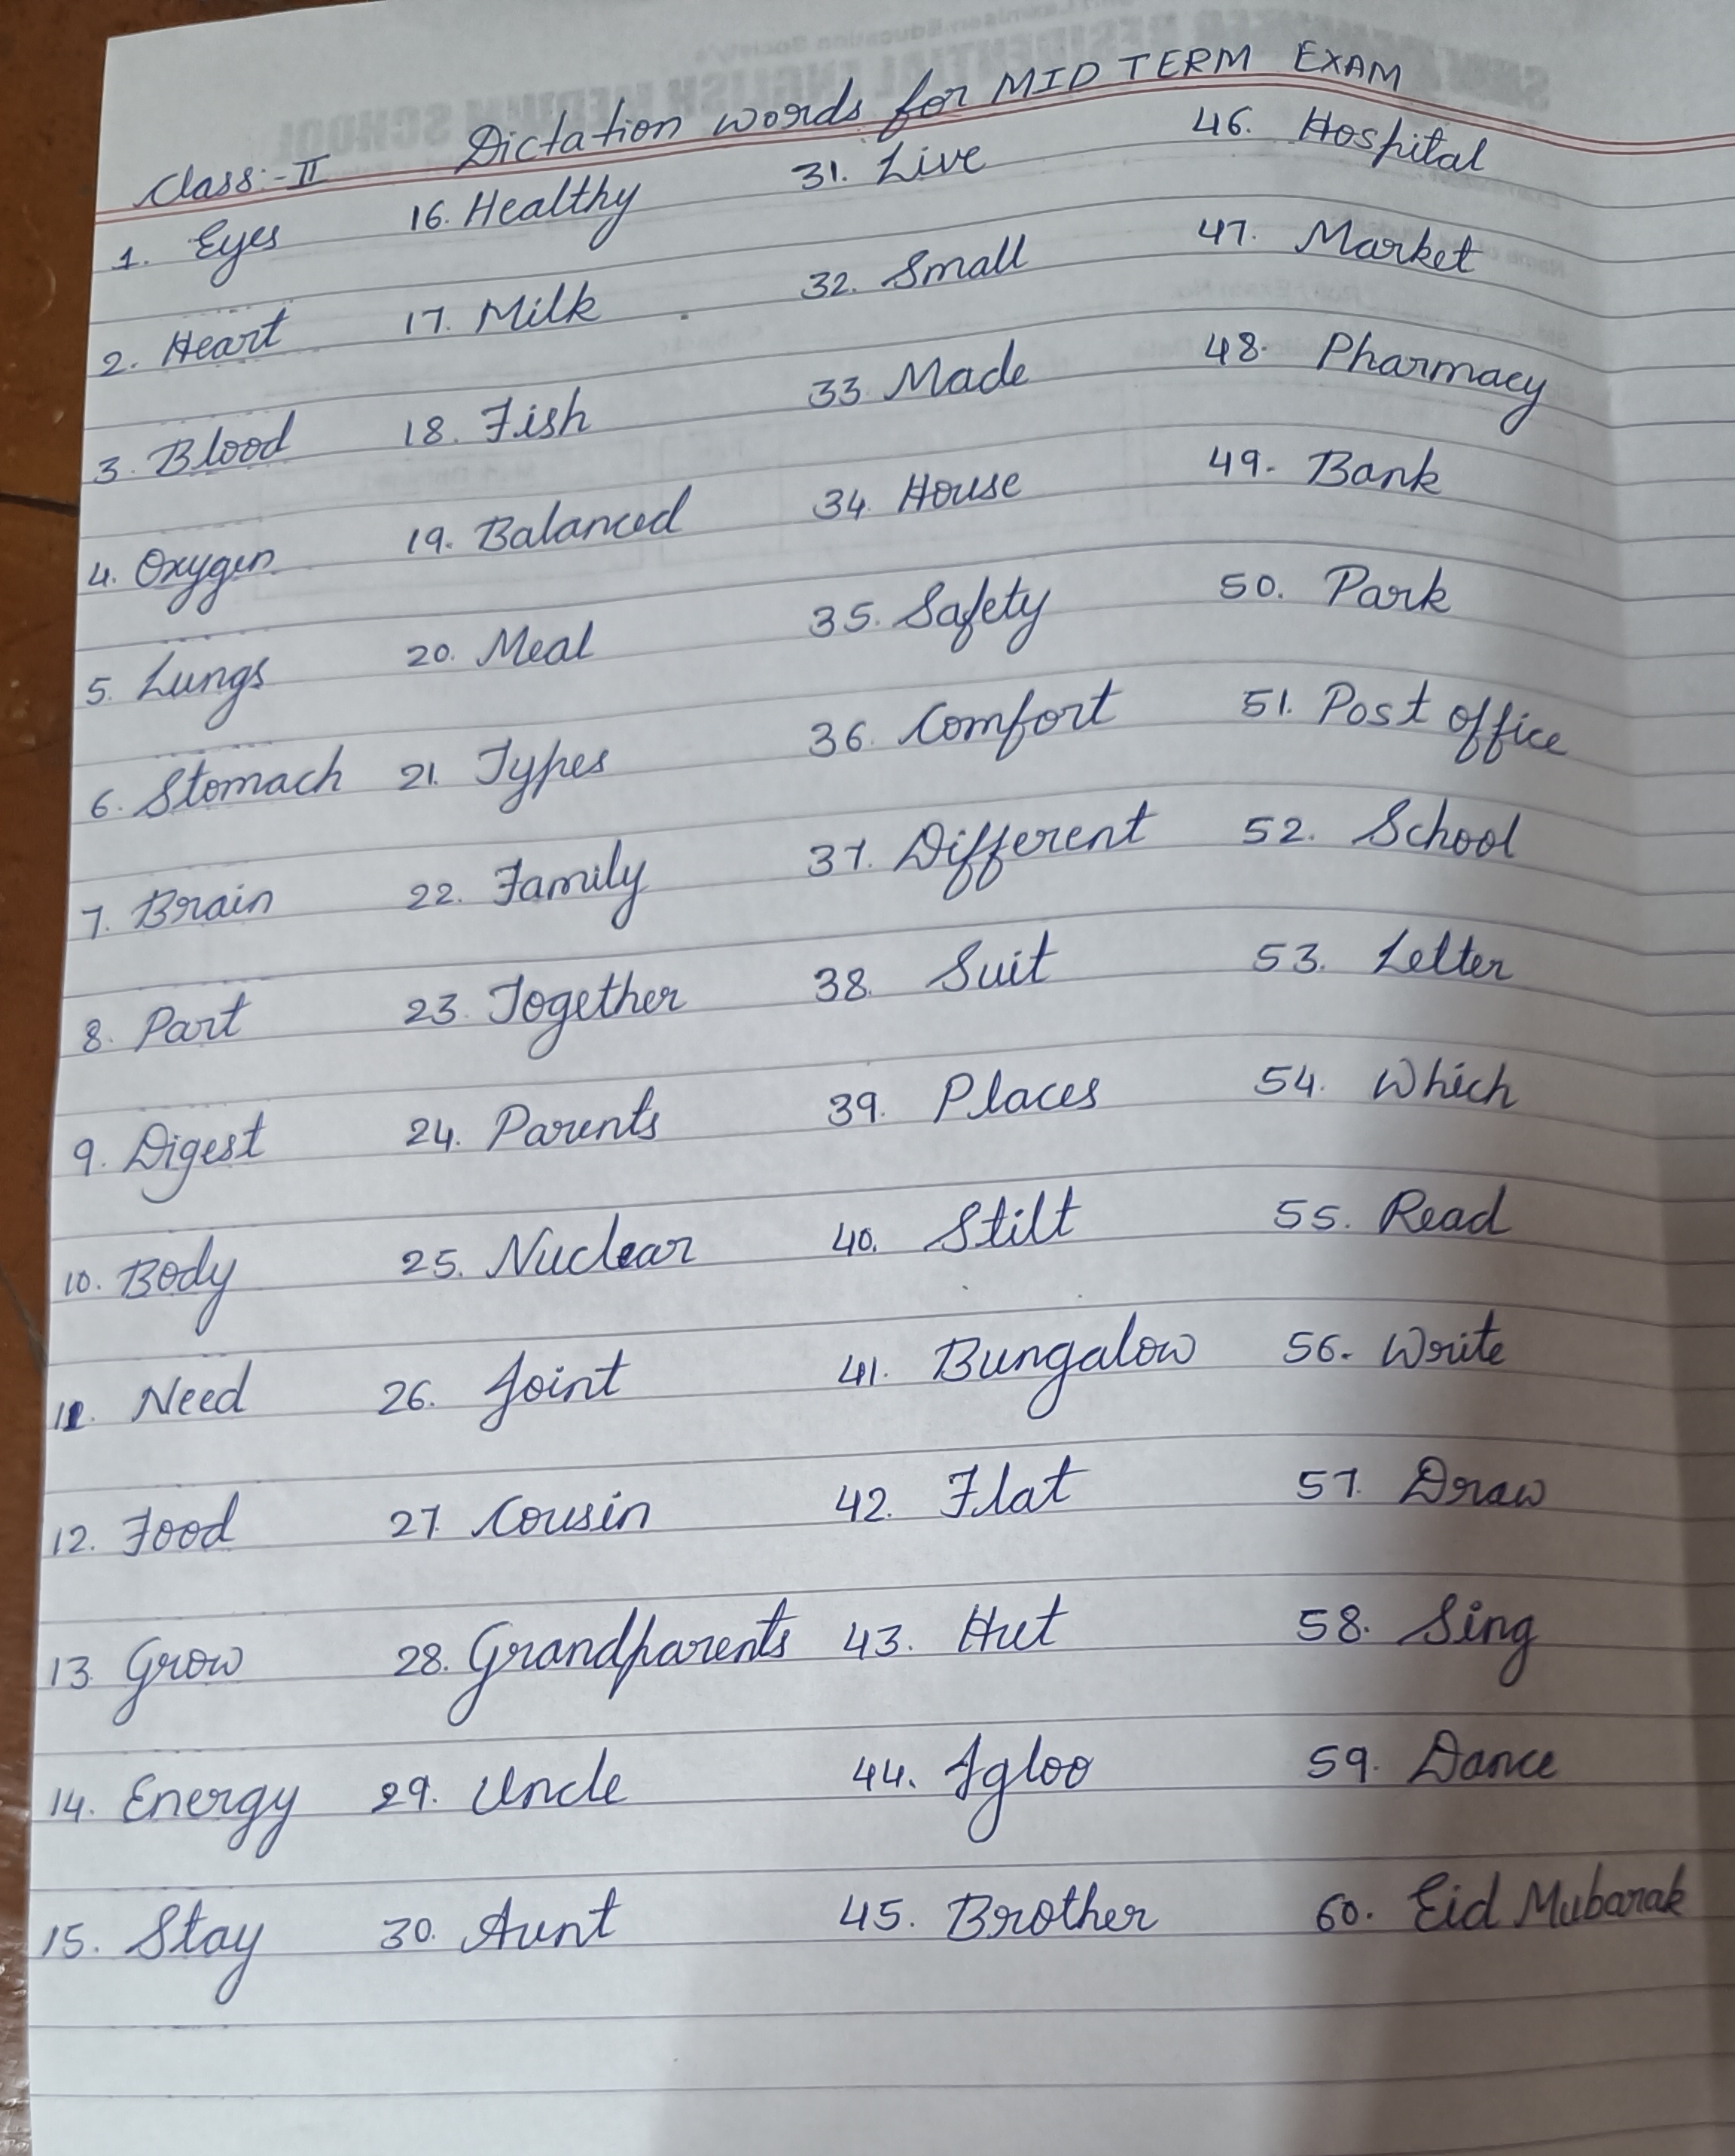 Dictation words for MID TERM EXAM
Class:- II
1. Eyes
2. Heart
3. Blood
4. Oxygen
5. Lungs
6. Stomach
7. Brain
8. Part
9. Digest
10. Body
11. Need
12. Food
13. Grow
14. Energy
15. Stay
16. Healthy
17. Milk
18. Fish
19. Balanced
20. Meal
21. Types
22. Family
23. Together
24. Parents
25. Nuclear
26. Joint
27. Cousin
28. Grandparents
29. Uncle
30. Aunt
31. Live
32. Small
33 Made
34. House
35. Safety
36. Comfort
37. Different
38. Suit
39. Places
40. Stilt
41. Bungalow
42. Flat
43. Hut
44. Igloo
45. Brother
46. Hospital
47. Market
48. Pharmacy
49. Bank
50. Park
51. Post office
52. School
53. Letter
54. Which
55. Read
56. Write
57. Draw
58. Sing
59. Dance
60. Eid Mubarak